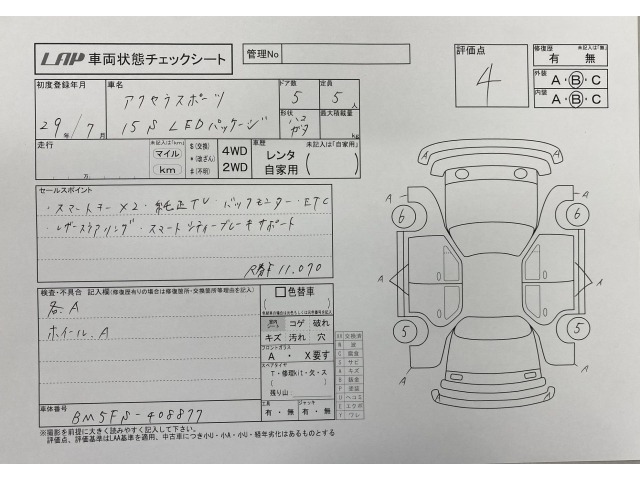 LAP 車両状態チェックシート
管理No
評価点
4
修復歴 未記入は「無」
有 無
外装 A・B・C
内装 A・B・C
初度登録年月
29年 7月
車名
アクセラスポーツ
15S LEDパッケージ
ドア数
5
定員
5人
形状
ハコ
ガタ
最大積載量
kg
走行
未記入は「km」
マイル
km
万
$(交換)
*(改ざん)
#(不明)
4WD
2WD
車歴 未記入は「自家用」
レンタ
自家用
セールスポイント
・スマートキー×2・純正TV・バックモニター・ETC
・レザーステアリング・スマートシティブレーキサポート
R券¥11,070
検査・不具合 記入欄(修復歴有りの場合は修復箇所・交換箇所等理由を記入)
各A
ホイールA
色替車
室内
シート
コゲ 破れ
キズ 汚れ 穴
フロントガラス
A ・ X要す
スペアタイヤ
T・修理kit・欠・ス
残り山
工具
有・無
ジャッキ
有・無
車体番号
BM5FS-408877
XX 交換済
W 波
C 腐食
S サビ
A キズ
B 鈑金
P 塗装
U ヘコミ
E エクボ
Y ワレ
A A
A A
6 6
A A
5 5
A A
A A
※撮影を前提に大きく読みやすく記入して下さい。
評価点、評価基準はLAA基準を適用、中古車につき小U・小A・小U・経年劣化はあるものとする